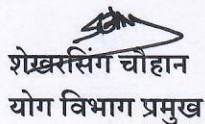 शेखरसिंग चौहान
योग विभाग प्रमुख